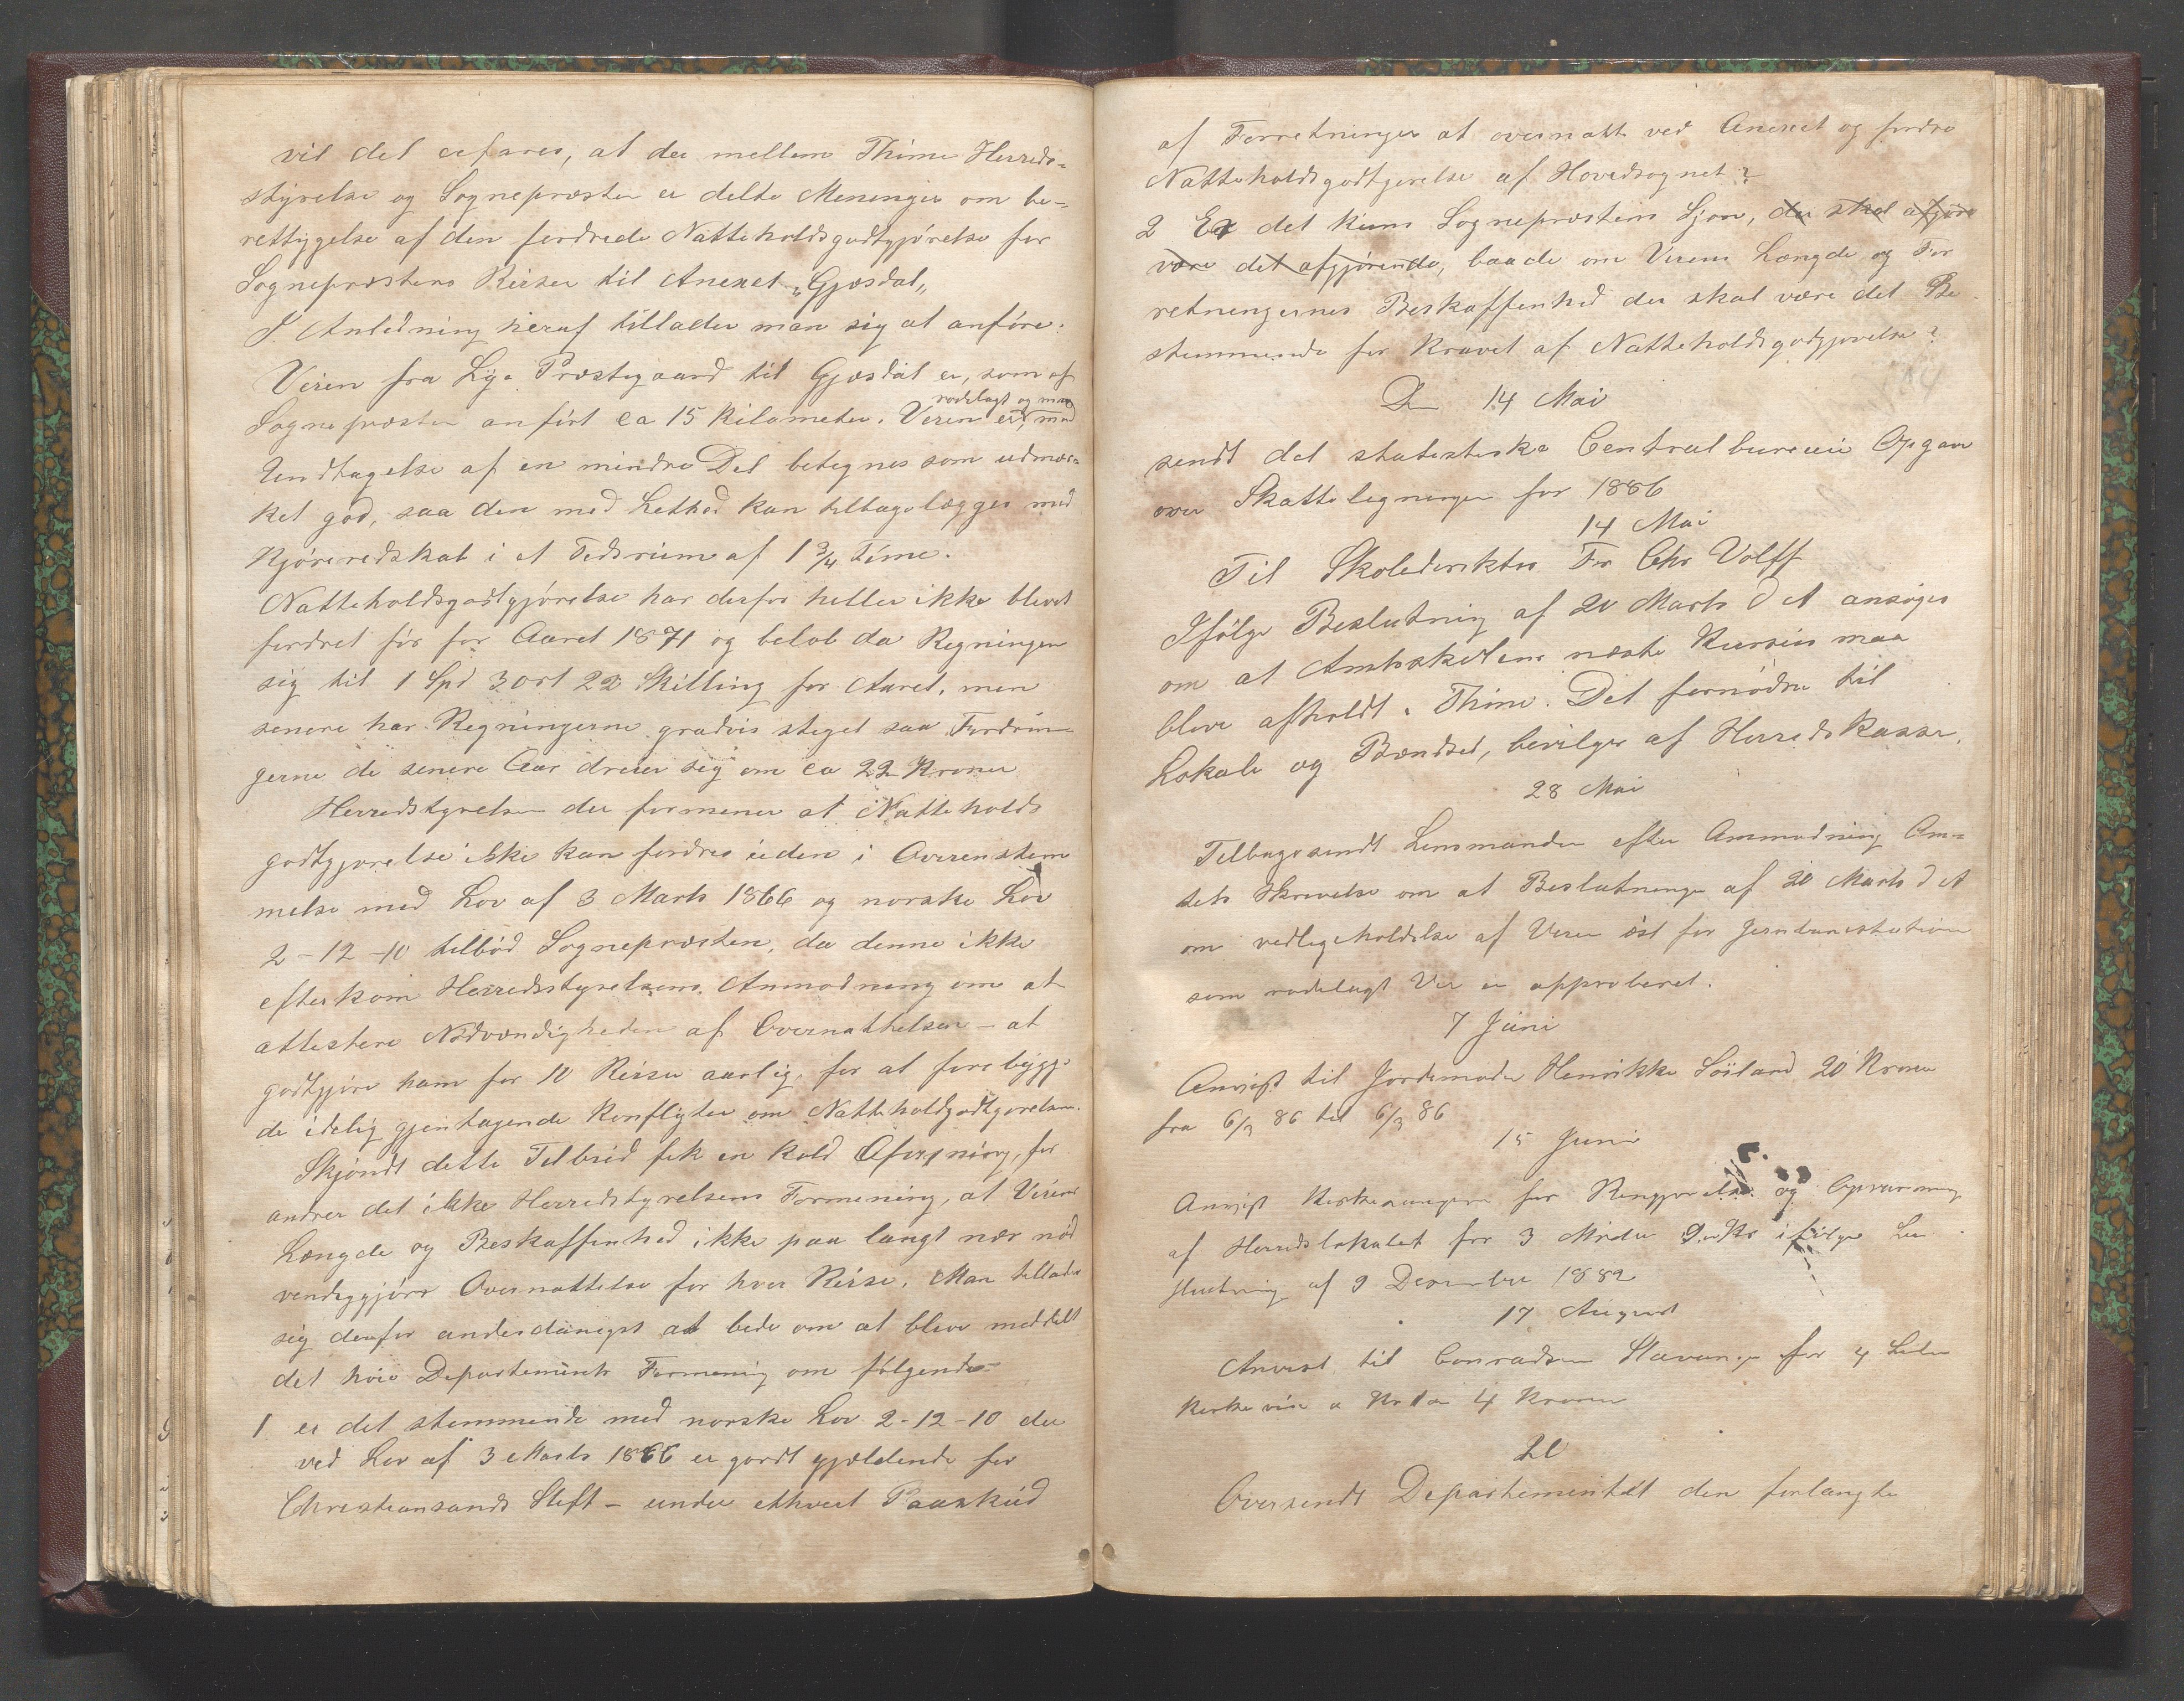 vil det erfares, at der mellem Thime Herreds-
styrelse og Sognepræsten er delte Meninger om be-
rettygelse af den fordrede Natteholdsgodtgjørelse for
Sognepræstens Reiser til Anexet „Gjesdal„
I Anledning heraf tillader man sig at anføre:
Veien fra Lye Præstegaard til Gjesdal er, som af
rodelagt og maa
Sognepræsten anført ca 15 kilometer. Veien er, med
Undtagelse af en mindre Del betegnes som udmær-
ket god, saa den med Lethed kan tilbagelægges med
Kjøreredskab i et Tidsrum af 1 3/4 time.
Natteholdsgodtgjørelse har derfor heller ikke blevet
fordret før for Aaret 1871 og beløb da Regningen
sig til 1 Spd 3 ort 22 Skilling for Aaret, men
senere har Regningerne gradvis steget saa Fordrin-
gerne de senere Aar dreier sig om ca 22 Kroner
Herredstyrelsen der formener at Natteholds
godtgjørelse ikke kan fordres uden i Overenstem
melse med Lov af 3 Marts 1866 og norske Lov
2-12-10 tilbød Sognepræsten, da denne ikke
efterkom Herredsstyrelsens Anmodning om at
attestere Nødvendigheden af Overnattelsen - at
godtgjøre ham for 10 Reiser aarlig, for at forebygge
de idelig gjentagende Konflikter om Natteholdsgodtgjørelsen.
Skjøndt dette Tilbud fik en kold Afvisning, for
andrer det ikke Herredstyrelsens Formening, at Veiens
Længde og Beskaffenhed ikke paa langt nær nød
vendiggjøre Overnattelse for hver Reise. Man tillader
sig derfor underdanigst at bede om at blive meddelt
det høie Departements Formening om følgende
1 er det stemmende med norske Lov 2-12-10 der
ved Lov af 3 Marts 1866 er gjordt gjældende for
Christiansands Stift - under ethvert Paaskud
af Forretninger at overnatte ved Anexet og fordre
Natteholdsgodtgjørelse af Hovedsognet?
2 Er det kuns Sognepræstens Skjøn, der skal afgjøre
være det afgjørende, baade om Veiens Længde og For
retningernes Beskaffenhed der skal være det Be
stemmende for Kravet af Natteholdsgodtgjørelse?
D 14 Mai
sendt det statistiske Centralbureau Opgave
over Skatteligningen for 1886
14 Mai
Til Skoledirektør Fr Chr Volff
Ifølge Beslutning af 20 Marts d A ansøges
om at Amtsskolens næste Kursus maa
blive afholdt i Thime. Det fornødne til
Lokale og Brændsel, bevilges af Herredskassen.
28 Mai
Tilbagesendt Lensmanden efter Anmodning Am-
tets Skrivelse om at Beslutningen af 20 Marts d A
om vedligeholdelse af Veien øst for Jernbanestationen
som rodelagt Vei er approberet.
7 Juni
Anvist til Jordemoder Henrikke Søiland 20 Kroner
fra 6/3 86 til 6/3 86
15 Juni
Anvist Kirkesangeren for Rengjørelse og Opvarming
af Herredslokalet for 3 Mdr 9 Kr ifølge Be
slutning af 9 Desember 1882
17 August
Anvist til Conradsen Stavanger for 4
a Kr 1 4 Kroner
21
Oversendt Departementet den forlangte